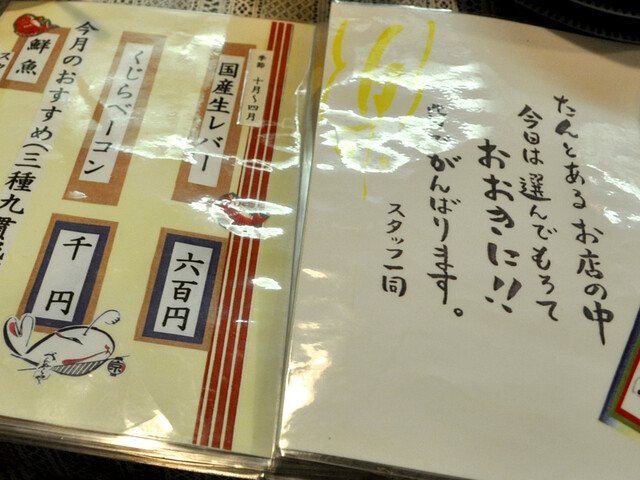 たんとあるお店の中
今日は選んでもろて
おおきに!!
がんばります。
スタッフ一同
季節 十月〜四月
国産生レバー
六百円
くじらベーコン
千円
今月のおすすめ(三種九貫
鮮魚